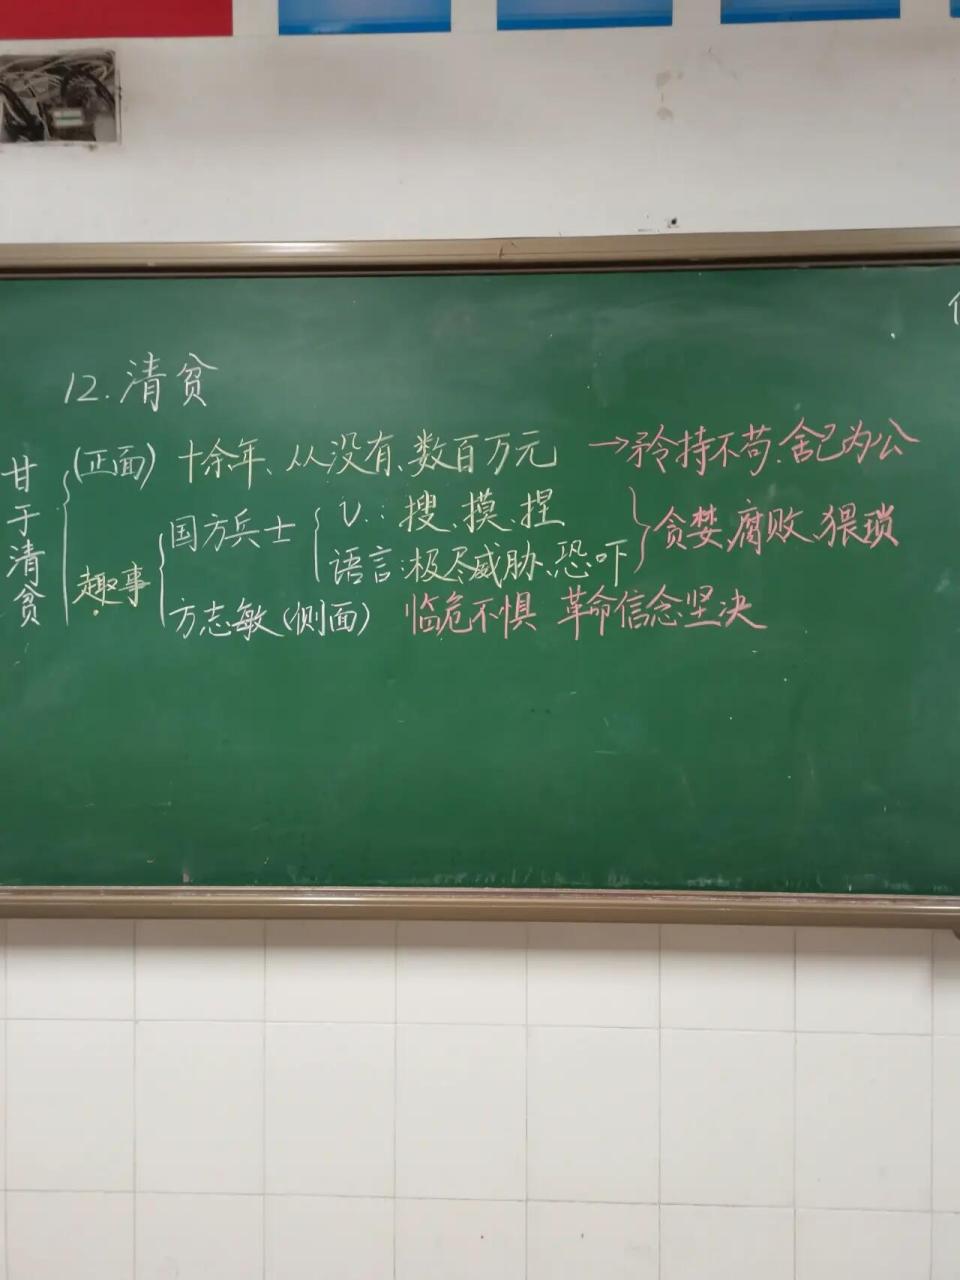 12.清贫
甘于清贫
(正面) 十余年、从没有、数百万元 →矜持不苟、舍己为公
趣事
国方兵士
V.: 搜、摸、捏
语言:极尽威胁、恐吓
贪婪、腐败、猥琐
方志敏(侧面) 临危不惧 革命信念坚决